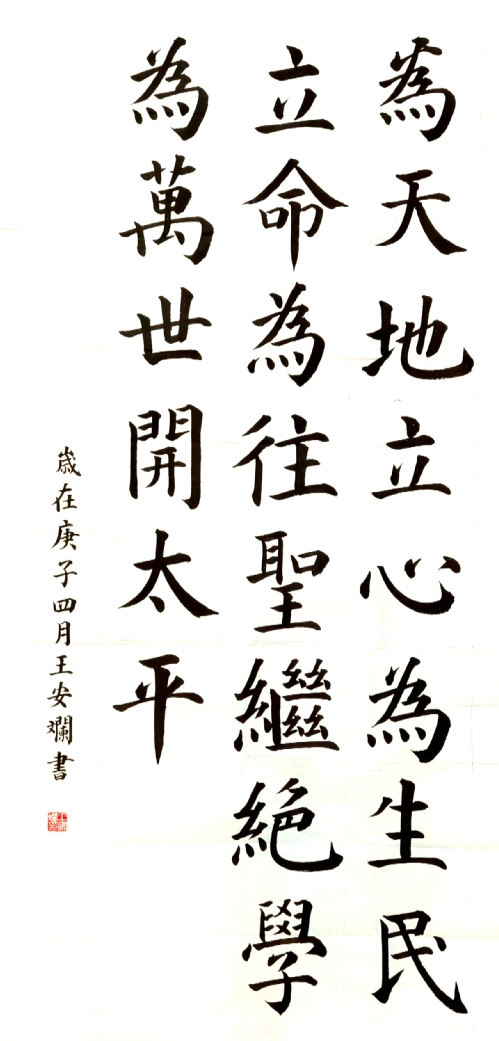 為天地立心為生民
立命為往聖繼絕學
為萬世開太平
歲在庚子四月王安斕書